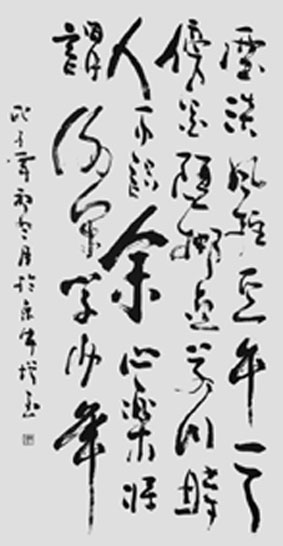 雲淡風輕近午天
傍花隨柳過前川時
人不識余心樂將
謂偷閑學少年
丙子 初冬月於京華